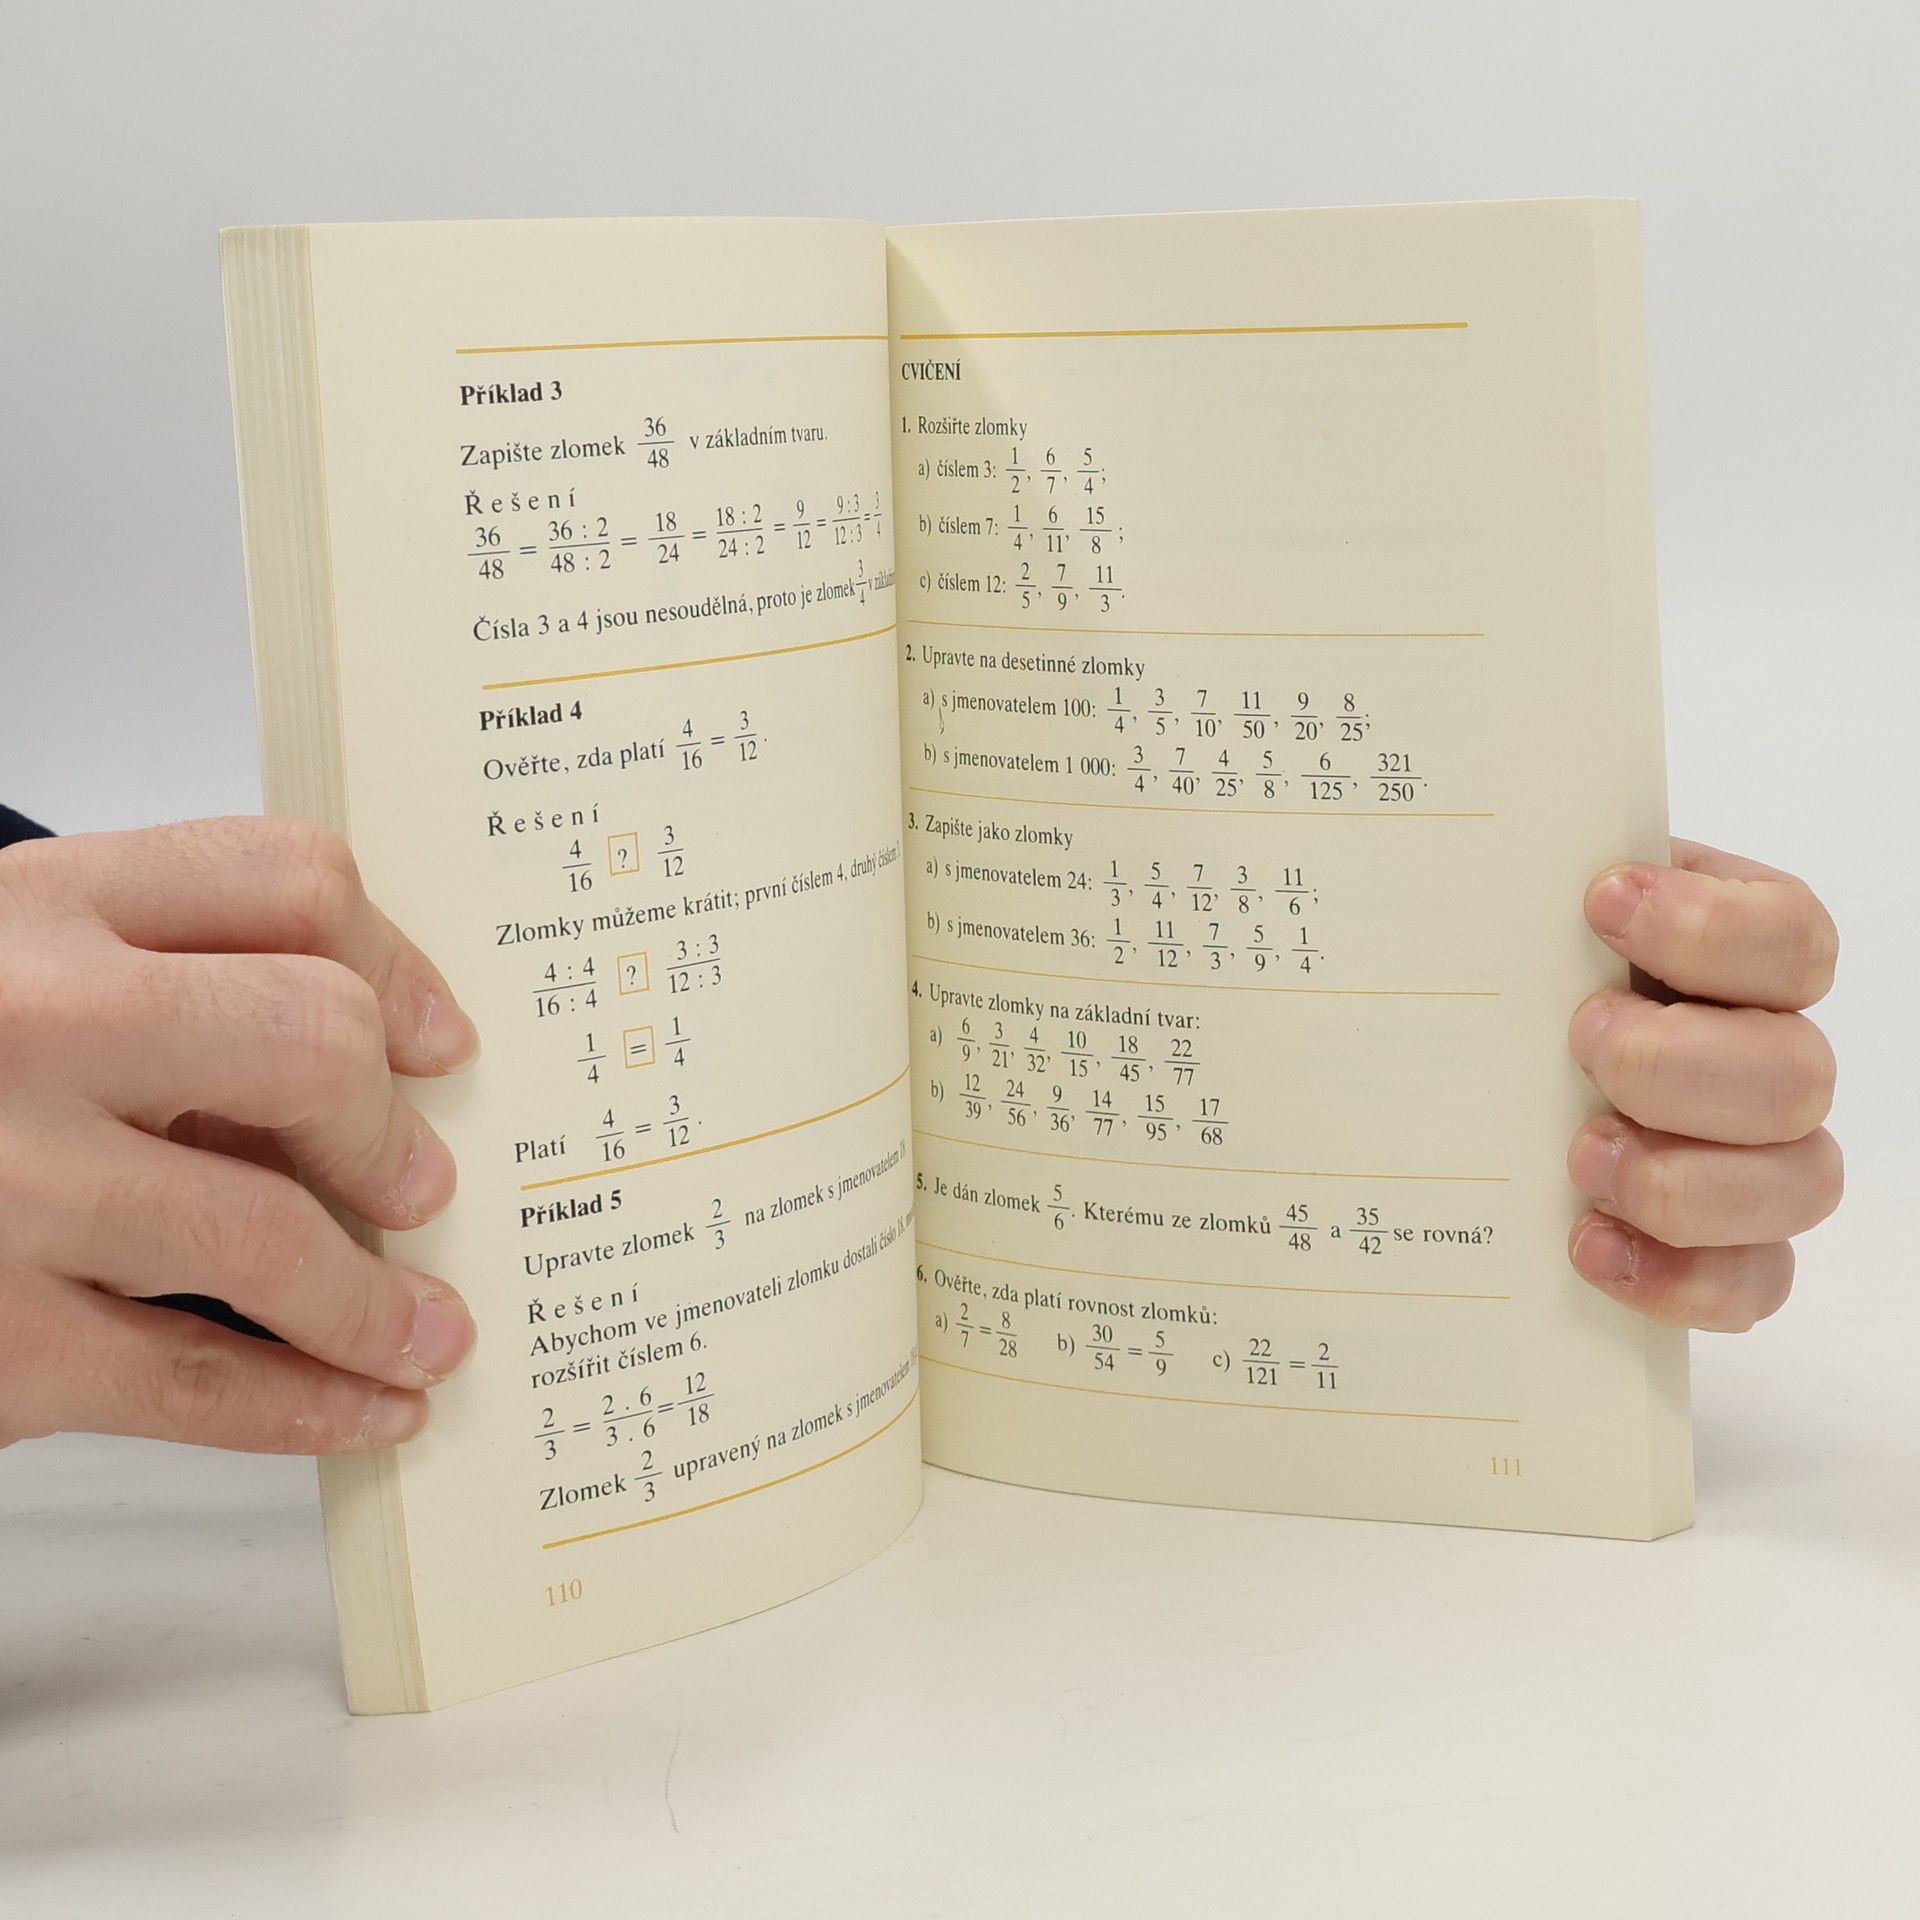 Příklad 3
Zapište zlomek 36/48 v základním tvaru.
Řešení
36/48 = 36 : 2/48 : 2 = 18/24 = 18 : 2/24 : 2 = 9/12 = 9 : 3/12 : 3 = 3/4
Čísla 3 a 4 jsou nesoudělná, proto je zlomek 3/4 v
Příklad 4
Ověřte, zda platí 4/16 = 3/12.
Řešení
4/16 ? 3/12
Zlomky můžeme krátit; první číslem 4, druhý číslem 3.
4 : 4/16 : 4 ? 3 : 3/12 : 3
1/4 = 1/4
Platí 4/16 = 3/12.
Příklad 5
Upravte zlomek 2/3 na zlomek s jmenovatelem 18.
Řešení
Abychom ve jmenovateli zlomku dostali číslo 18,
rozšířit číslem 6.
2/3 = 2 . 6/3 . 6 = 12/18
Zlomek 2/3 upravený na zlomek s jmenovatelem
110
CVIČENÍ
1. Rozšiřte zlomky
a) číslem 3: 1/2, 6/7, 5/4;
b) číslem 7: 1/4, 6/11, 15/8;
c) číslem 12: 2/5, 7/9, 11/3.
2. Upravte na desetinné zlomky
a) s jmenovatelem 100: 1/4, 3/5, 7/10, 11/50, 9/20, 8/25;
b) s jmenovatelem 1 000: 3/4, 7/40, 4/25, 5/8, 6/125, 321/250.
3. Zapište jako zlomky
a) s jmenovatelem 24: 1/3, 5/4, 7/12, 3/8, 11/6;
b) s jmenovatelem 36: 1/2, 11/12, 7/3, 5/9, 1/4.
4. Upravte zlomky na základní tvar:
a) 6/9, 3/21, 4/32, 10/15, 18/45, 22/77
b) 12/39, 24/56, 9/36, 14/77, 15/95, 17/68
5. Je dán zlomek 5/6. Kterému ze zlomků 45/48 a 35/42 se rovná?
6. Ověřte, zda platí rovnost zlomků:
a) 2/7 = 8/28 b) 30/54 = 5/9 c) 22/121 = 2/11
111